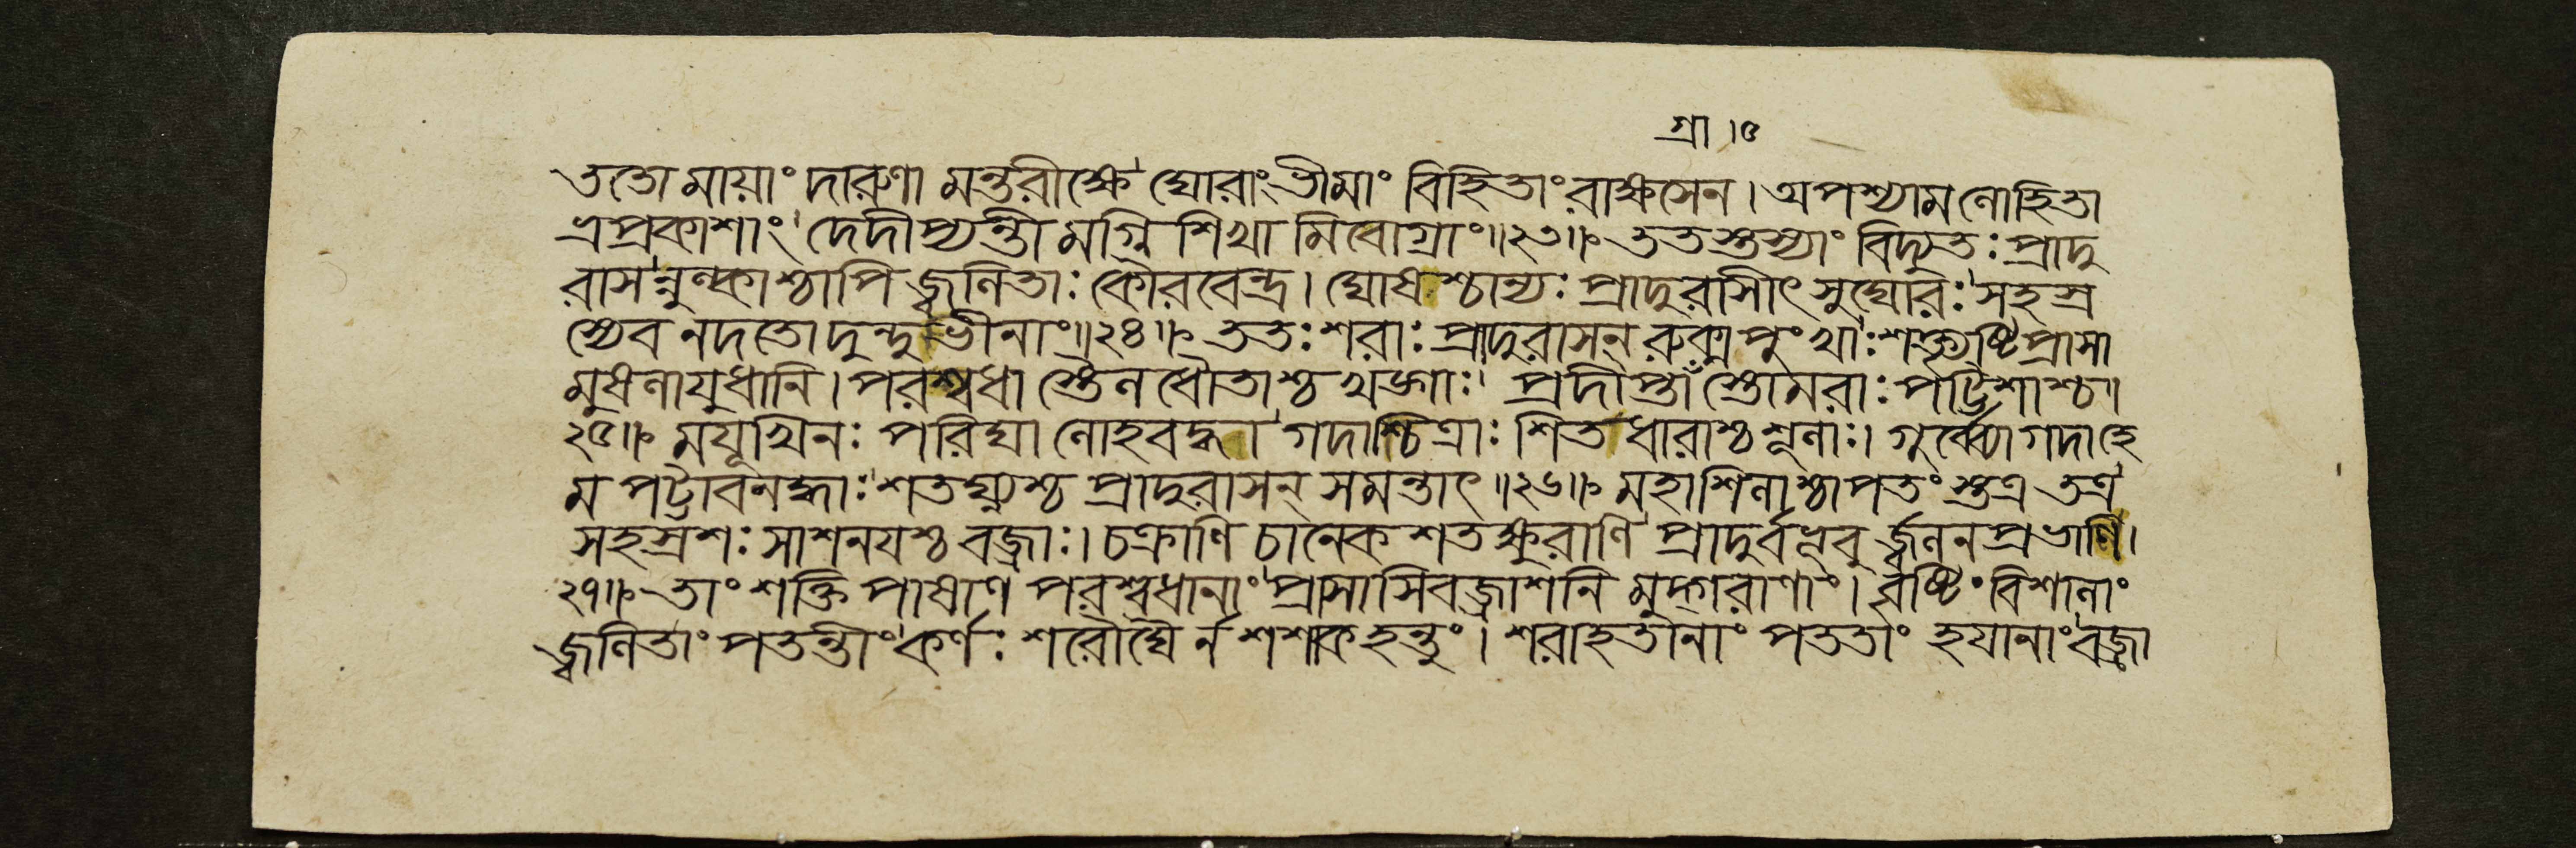 গ্রা ।৫
ততো মায়াং দারুণা মন্তরীক্ষে ঘোরাং ভীমাং বিহিতাং রাক্ষসেন। অপশ্যাম লোহিতা
ভ্রপ্রকাশাং দেদীপ্যন্তী মগ্নি শিখা মিবোগ্রাং॥২৩॥ ততস্তস্যাং বিদ্যুতঃ প্রাদু
রাসন্নুল্কাশ্চাপি জ্বলিতাঃ কৌরবেন্দ্র। ঘোষশ্চান্যঃ প্রাদুরাসীৎ সুঘোরঃ সহস্র
শ্যেব নদতো দুন্দুভীনাং॥২৪॥ ততঃ শরাঃ প্রাদুরাসন্ রুক্মপুংখাঃ শক্ত্যৃষ্টি প্রাসা
মুষলায়ুধানি। পরশ্বধা স্তৈল ধৌতাশ্চ খড়্গাঃ প্রদীপ্তাঁ স্তোমরাঃ পট্টিশাশ্চ॥
২৫॥ ময়ূখিনঃ পরিঘা লোহবদ্ধা গদাশ্চিত্রাঃ শিত ধারাশ্চ শূলাঃ। গুর্ব্ব্যো গদা হে
ম পট্টাবনদ্ধাঃ শতঘ্ন্যশ্চ প্রাদুরাসন্ সমন্তাৎ॥২৬॥ মহাশিলাশ্চাপতং স্তত্র তত্র
সহস্রশঃ সাশনয়শ্চ বজ্রাঃ। চক্রাণি চানেক শতক্ষুরাণি প্রাদুর্বভূবু র্জ্বলন প্রভাণি।
২৭॥ তাং শক্তি পাষাণ পরশ্বধানাং প্রাসাসি বজ্রাশনি মুদ্গরাণাং। বৃষ্টিং বিশালাং
জ্বলিতাং পতন্তীং কর্ণঃ শরৌঘৈর্ন শশাক হন্তুং। শরাহতানাং পততাং হয়ানাং বজ্রা